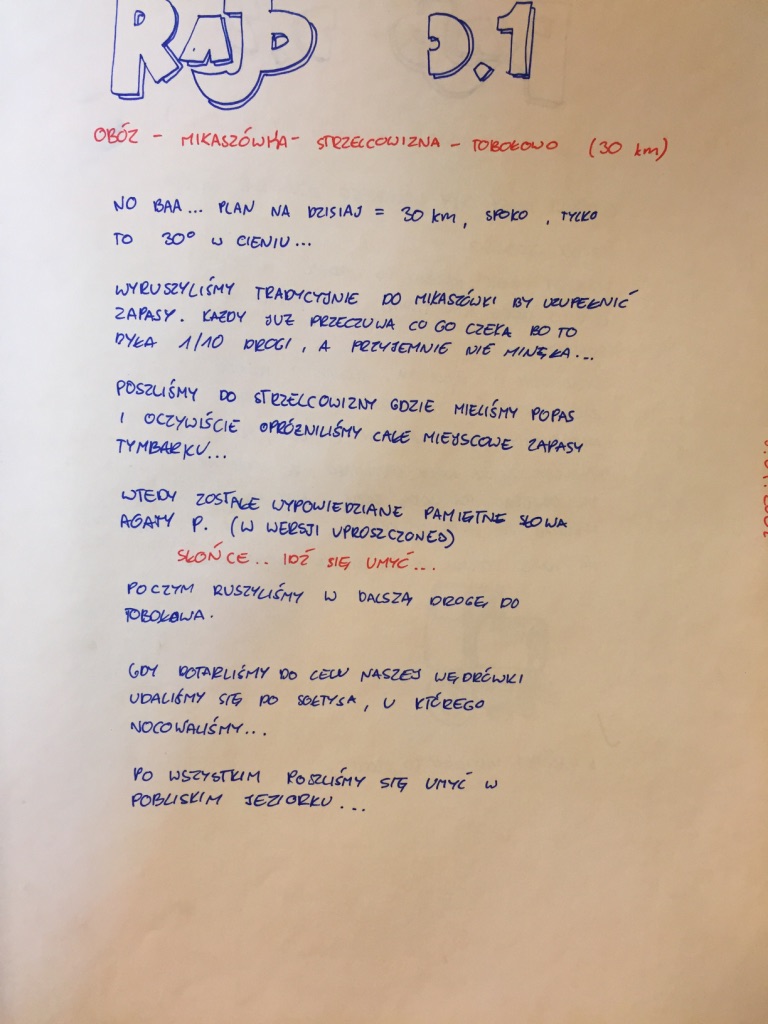 RAJD D.1
OBÓZ - MIKASZÓWKA - STRZELCOWIZNA - TOBOŁOWO (30 km)
NO BAA... PLAN NA DZISIAJ = 30 km, SPOKO, TYLKO
TO 30° W CIENIU...
WYRUSZYLIŚMY TRADYCYJNIE DO MIKASZÓWKI BY UZUPEŁNIĆ
ZAPASY. KAŻDY JUŻ PRZECZUWA CO GO CZEKA BO TO
DYŁA 1/10 DROGI, A PRZYJEMNIE NIE MINĘŁA...
POSZLIŚMY DO STRZELCOWIZNY GDZIE MIELIŚMY POPAS
I OCZYWIŚCIE OPRÓŻNILIŚMY CAŁE MIEJSCOWE ZAPASY
TYMBARKU...
WTEDY ZOSTAŁE WYPOWIEDZIANE PAMIĘTNE SŁOWA
AGATY P. (W WERSJI UPROSZCZONEJ)
SŁOŃCE.. IDŹ SIĘ UMYĆ...
POCZYM RUSZYLIŚMY W DALSZĄ DROGĘ, DO
TOBOŁOWA.
GDY DOTARLIŚMY DO CELU NASZEJ WĘDRÓWKI
UDALIŚMY SIĘ DO SOŁTYSA, U KTÓREGO
NOCOWALIŚMY...
PO WSZYSTKIM POSZLIŚMY SIĘ UMYĆ W
POBLISKIM JEZIORKU...